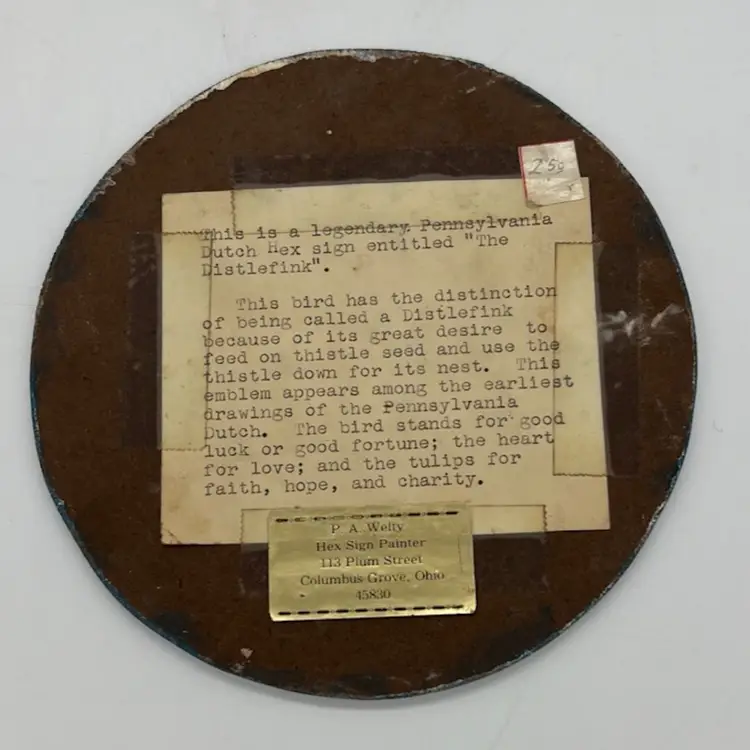 250
This is a legendary Pennsylvania
Dutch Hex sign entitled "The
Distlefink".
This bird has the distinction
of being called a Distlefink
because of its great desire to
feed on thistle seed and use the
thistle down for its nest. This
emblem appears among the earliest
drawings of the Pennsylvania
Dutch. The bird stands for good
luck or good fortune; the heart
for love; and the tulips for
faith, hope, and charity.
P. A. Welty
Hex Sign Painter
113 Plum Street
Columbus Grove, Ohio
45830